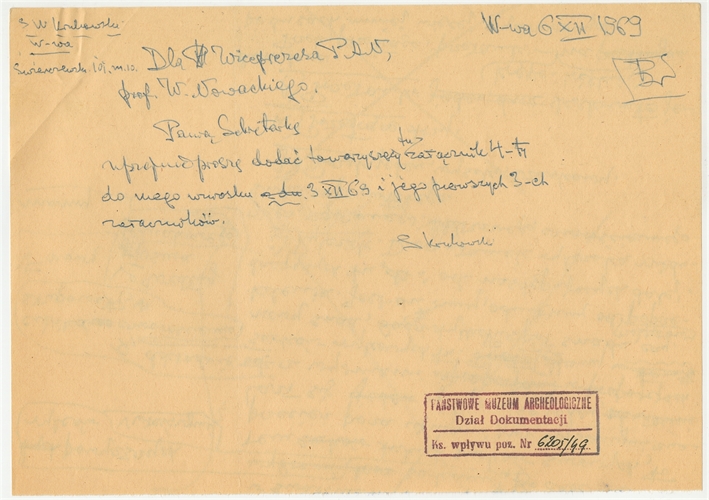 S W Krukowski
W-wa
W-wa 6 XII 1969
Dla Wiceprezesa P.A.N,
prof. W. Nowackiego.
Panią Sekretarkę
uprzejmie proszę dodać towarzyszący tu załącznik 4-ty
do mego wniosku 3 XII 69 i jego pierwszych 3-ch
załączników.
S Krukowski
PAŃSTWOWE MUZEUM ARCHEOLOGICZNE
Dział Dokumentacji
Ks. wpływu poz. Nr 6205/49